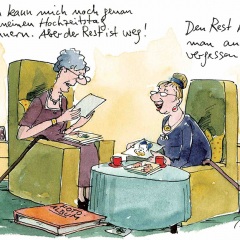 kann mich noch genau
meinen Hochzeitstag
nern. Aber der Rest ist weg!
Den Rest
man au
vergessen